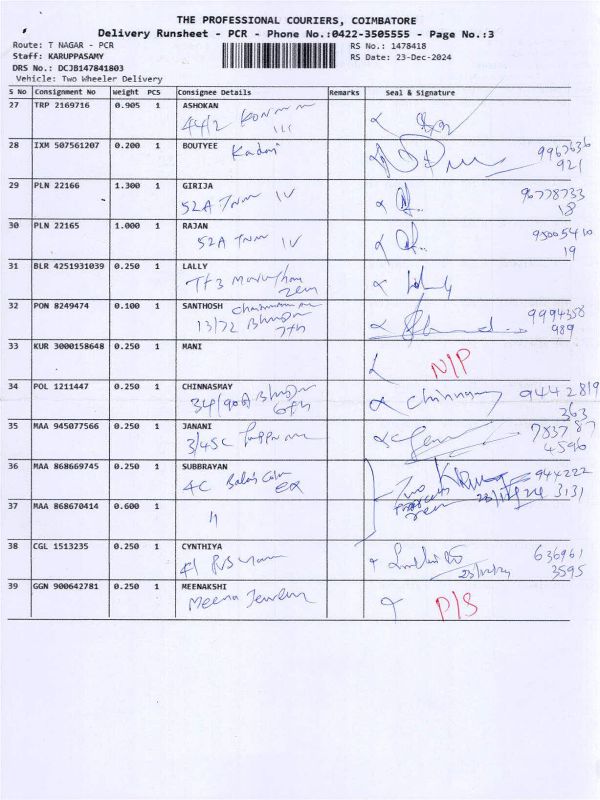 THE PROFESSIONAL COURIERS, COIMBATORE
Delivery Runsheet - PCR - Phone No.:0422-3505555 - Page No.:3
Route: T NAGAR - PCR RS No.: 1478418
Staff: KARUPPASAMY RS Date: 23-Dec-2024
DRS No.: DCJB147841803
Vehicle: Two Wheeler Delivery
S No Consignment No Weight PCS Consignee Details Remarks Seal & Signature
27 TRP 2169716 0.905 1 ASHOKAN
44/2
28 IXM 507561207 0.200 1 BOUTYEE
9967636
921
29 PLN 22166 1.300 1 GIRIJA
52A IV 96778733
18
30 PLN 22165 1.000 1 RAJAN
52A IV 95005410
19
31 BLR 4251931039 0.250 1 LALLY
TF3
32 PON 8249474 0.100 1 SANTHOSH
13/72 7th 9994358
989
33 KUR 3000158648 0.250 1 MANI
N/P
34 POL 1211447 0.250 1 CHINNASMAY
6th Chinnasamy 9442819
363
35 MAA 945077566 0.250 1 JANANI
3/45C 783787
4596
36 MAA 868669745 0.250 1 SUBBRAYAN
4C Two 944222
23/12/24 3131
37 MAA 868670414 0.600 1
11
38 CGL 1513235 0.250 1 CYNTHIYA
41 636961
23/12/24 3595
39 GGN 900642781 0.250 1 MEENAKSHI
Meena P/S